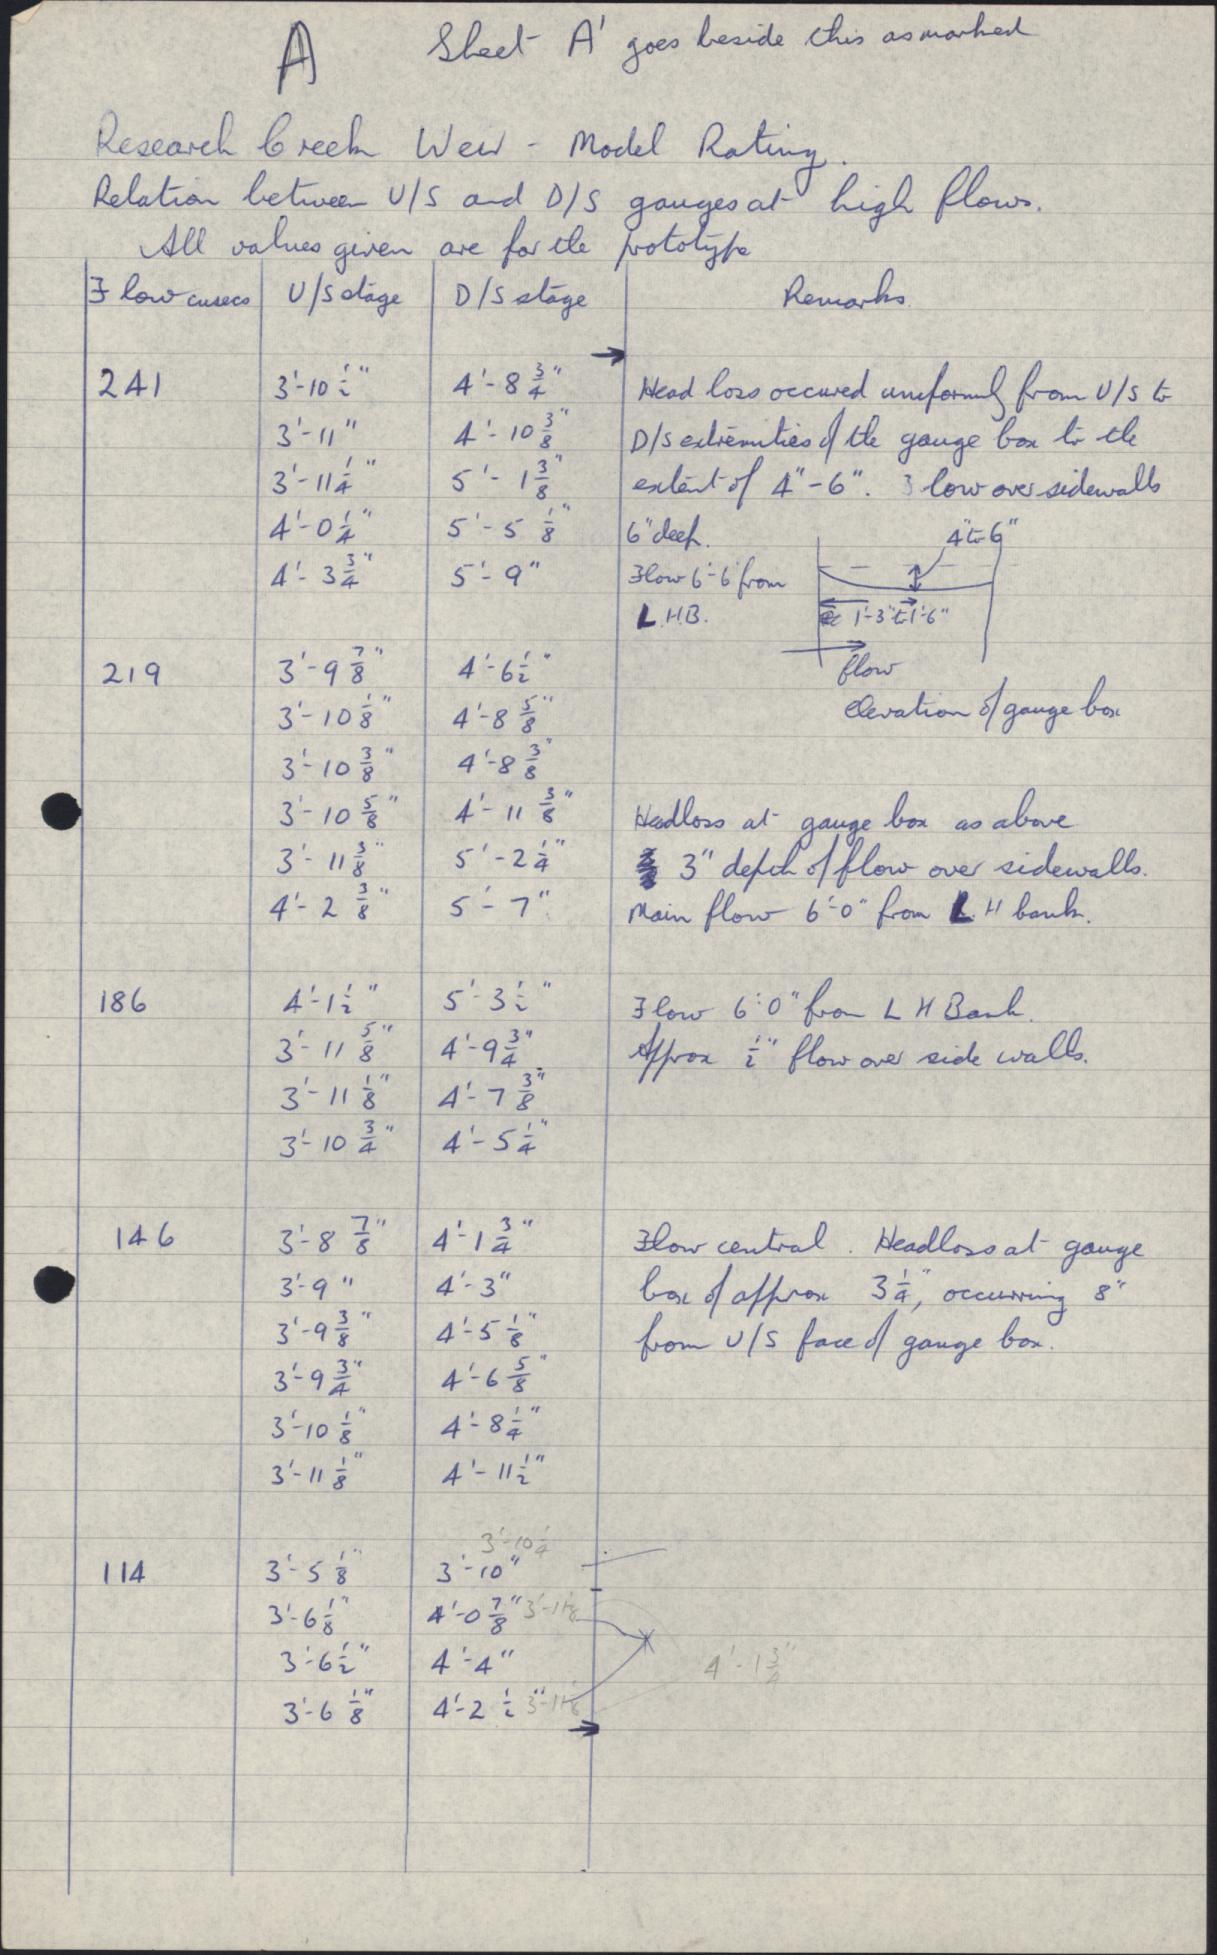 A Sheet A' goes beside this as marked
Research Creek Weir - Model Rating.
Relation between U/S and D/S gauges at high flows.
All values given are for the prototype
Flow cusecs U/S stage D/S stage Remarks
241 3'-10 1/2" 4'-8 3/4" Head loss occured uniformly from U/S to
3'-11" 4'-10 3/8" D/S extremities of the gauge box to the
3'-11 1/4" 5'-1 3/8" extent of 4"-6". Flow over sidewalls
4'-0 1/4" 5'-5 1/8" 6" deep. 4" to 6"
4'-3 3/4" 5'-9" Flow 6'-6" from
L.H.B. 1'-3" to 1'-6"
219 3'-9 7/8" 4'-6 1/2" flow
3'-10 1/8" 4'-8 5/8" Elevation of gauge box
3'-10 3/8" 4'-8 3/8"
3'-10 5/8" 4'-11 3/8" Headloss at gauge box as above
3'-11 3/8" 5'-2 1/4" 3" depth of flow over sidewalls.
4'-2 3/8" 5'-7" Main flow 6'-0" from L.H bank.
186 4'-1 1/2" 5'-3 1/2" Flow 6'-0" from L H Bank.
3'-11 5/8" 4'-9 3/4" Approx 1/2" flow over side walls.
3'-11 1/8" 4'-7 3/8"
3'-10 3/4" 4'-5 1/4"
146 3'-8 7/8" 4'-1 3/4" Flow central. Headloss at gauge
3'-9" 4'-3" box of approx 3 1/4", occurring 8"
3'-9 3/8" 4'-5 1/8" from U/S face of gauge box.
3'-9 3/4" 4'-6 5/8"
3'-10 1/8" 4'-8 1/4"
3'-11 1/8" 4'-11 1/2"
3'-10 1/4
114 3'-5 1/8" 3'-10"
3'-6 1/8" 4'-0 7/8"
3'-6 1/2" 4'-4" 4'-1 3/4"
3'-6 1/8" 4'-2 1/2"